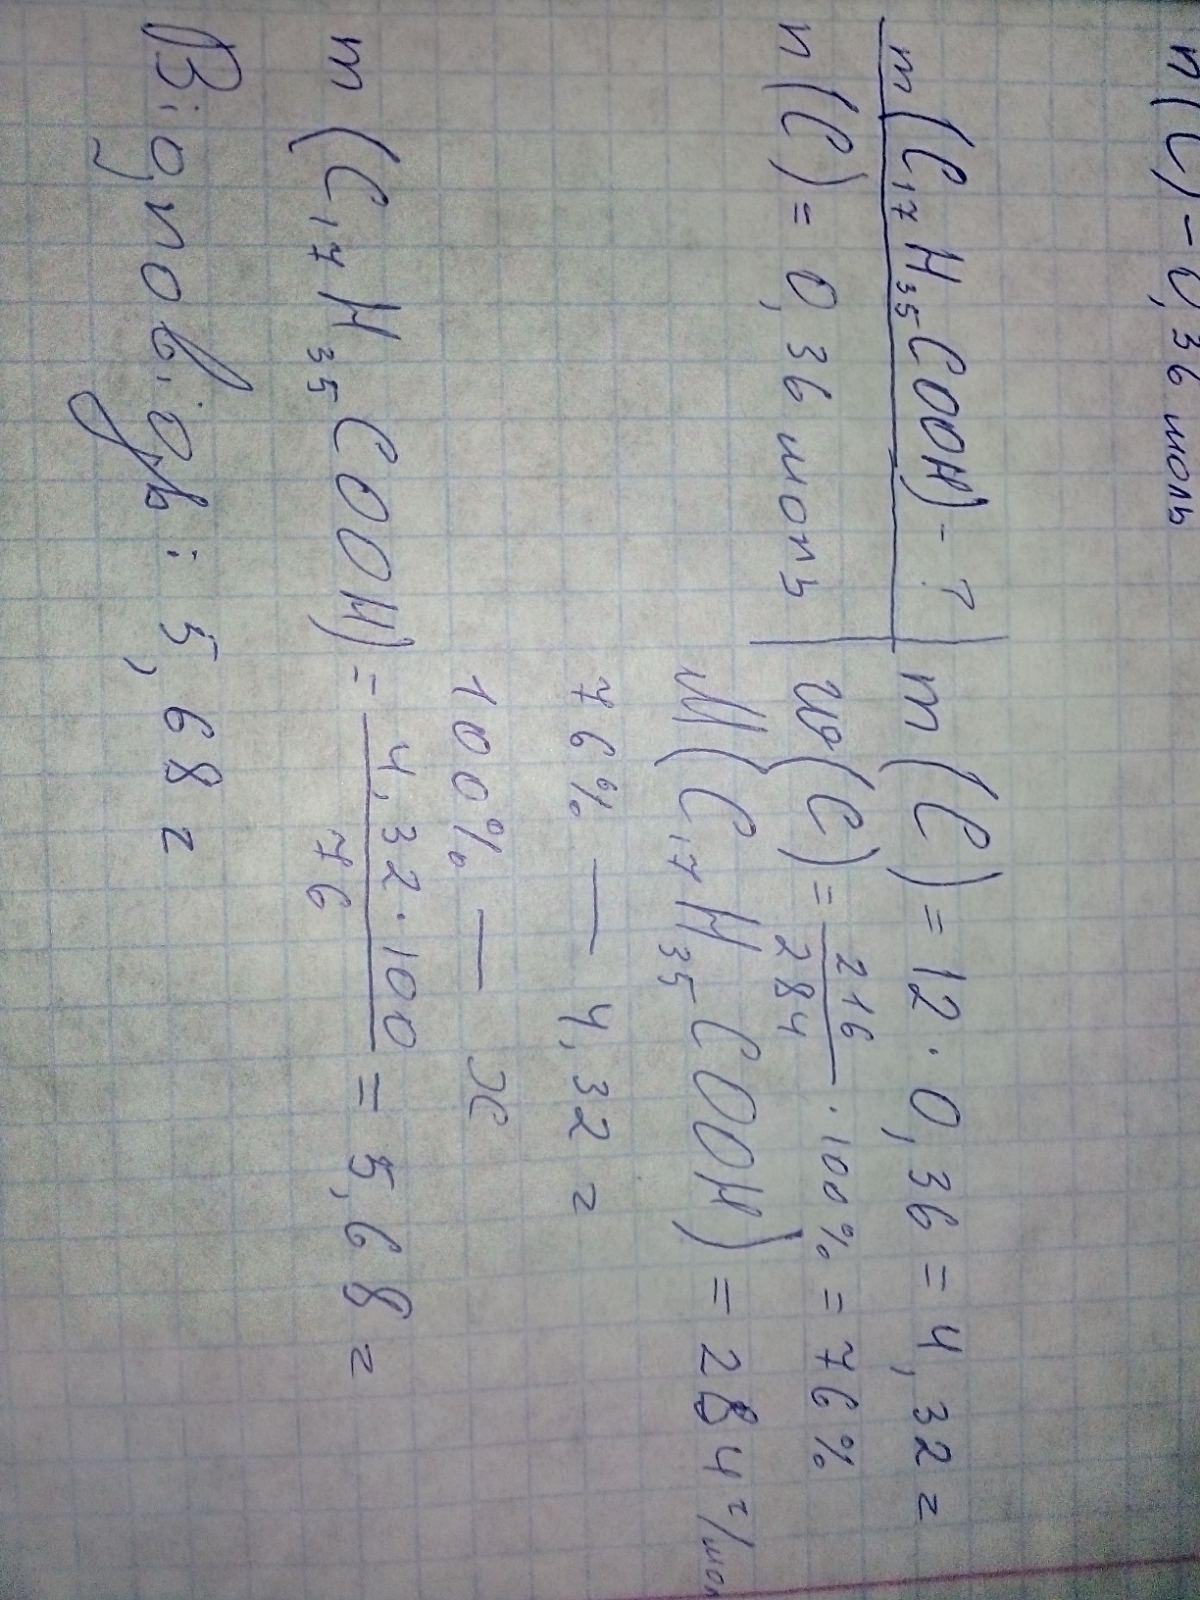 n(C) - 0,36 моль
m(C₁₇H₃₅COOH) - ?
n(C) = 0,36 моль
m(C) = 12 · 0,36 = 4,32 г
w(C) = 216/284 · 100% = 76%
M(C₁₇H₃₅COOH) = 284 г/мол
76% — 4,32 г
100% — x
m(C₁₇H₃₅COOH) = 4,32·100/76 = 5,68 г
Відповідь: 5,68 г